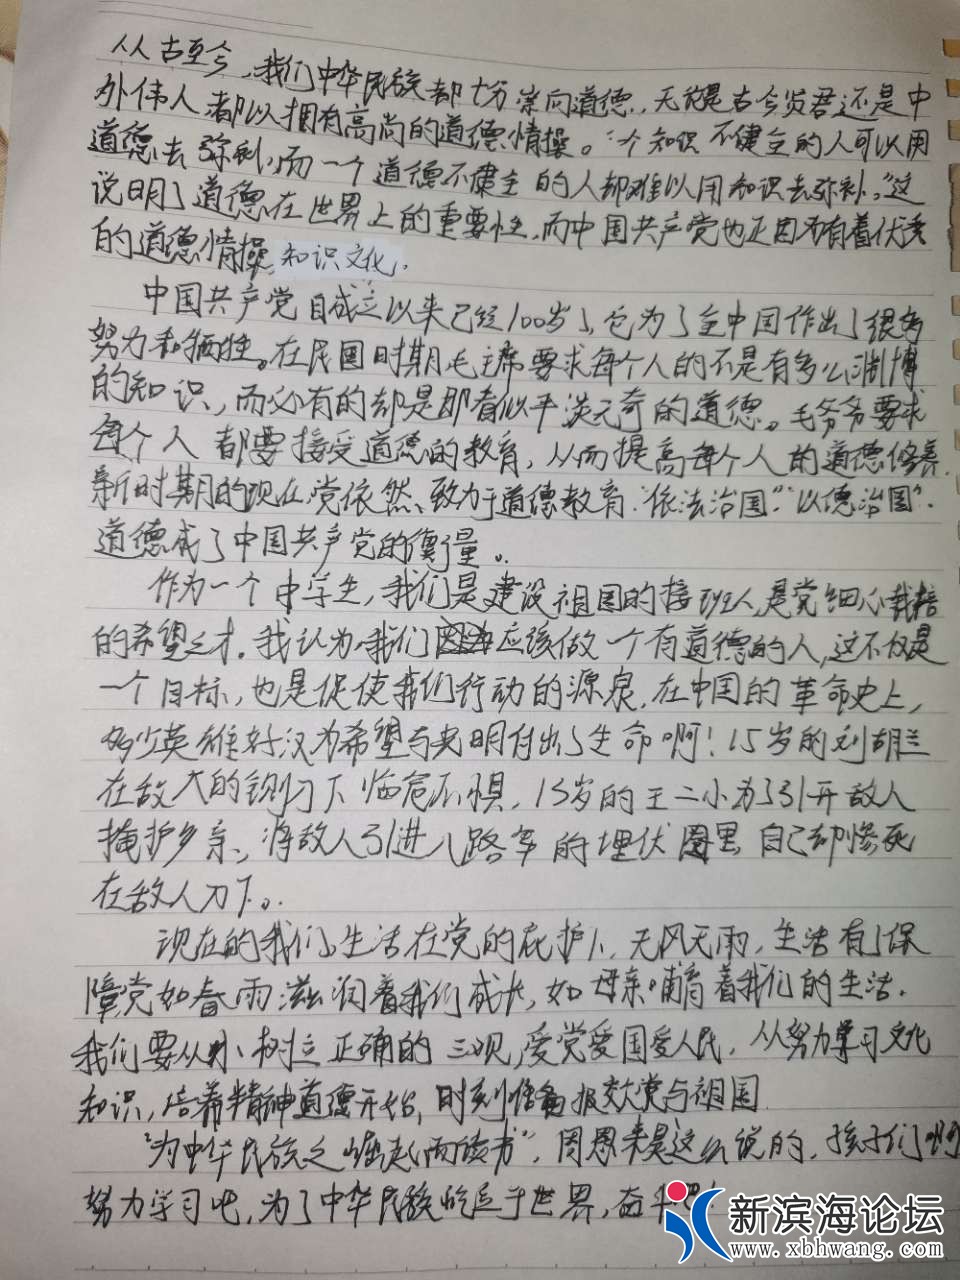 从古至今,我们中华民族都十分崇尚道德,无论是古今贤君还是中
外伟人都以拥有高尚的道德情操。"一个知识不健全的人可以用
道德去弥补,而一个道德不健全的人却难以用知识去弥补。"这
说明了道德在世界上的重要性,而中国共产党也正因为有着优秀
的道德情操,知识文化.
中国共产党自成立以来已经100岁了,它为了全中国作出了很多
努力和牺牲。在民国时期毛主席要求每个人的不是有多么渊博
的知识,而必有的却是那看似平淡无奇的道德。毛爷爷要求
每个人都要接受道德的教育,从而提高每个人的道德修养.
新时期的现在,党依然致力于道德教育."依法治国""以德治国".
道德成了中国共产党的衡量。
作为一个中学生,我们是建设祖国的接班人,是党细心栽培
的希望之才.我认为,我们应该做一个有道德的人,这不仅是
一个目标,也是促使我们行动的源泉.在中国的革命史上,
多少英雄好汉为希望与光明付出了生命啊!15岁的刘胡兰
在敌人的铡刀下临危不惧,13岁的王二小为了引开敌人
掩护乡亲,将敌人引进八路军的埋伏圈里,自己却惨死
在敌人刀下。
现在的我们,生活在党的庇护下,无风无雨,生活有了保
障党如春雨滋润着我们成长,如母亲哺育着我们的生活.
我们要从小树立正确的三观,爱党爱国爱人民,从努力学习文化
知识,培养精神道德开始,时刻准备报效党与祖国
"为中华民族之崛起而读书",周恩来是这么说的,孩子们啊
努力学习吧,为了中华民族屹立于世界,奋斗吧!
新滨海论坛
www.xbhwang.com